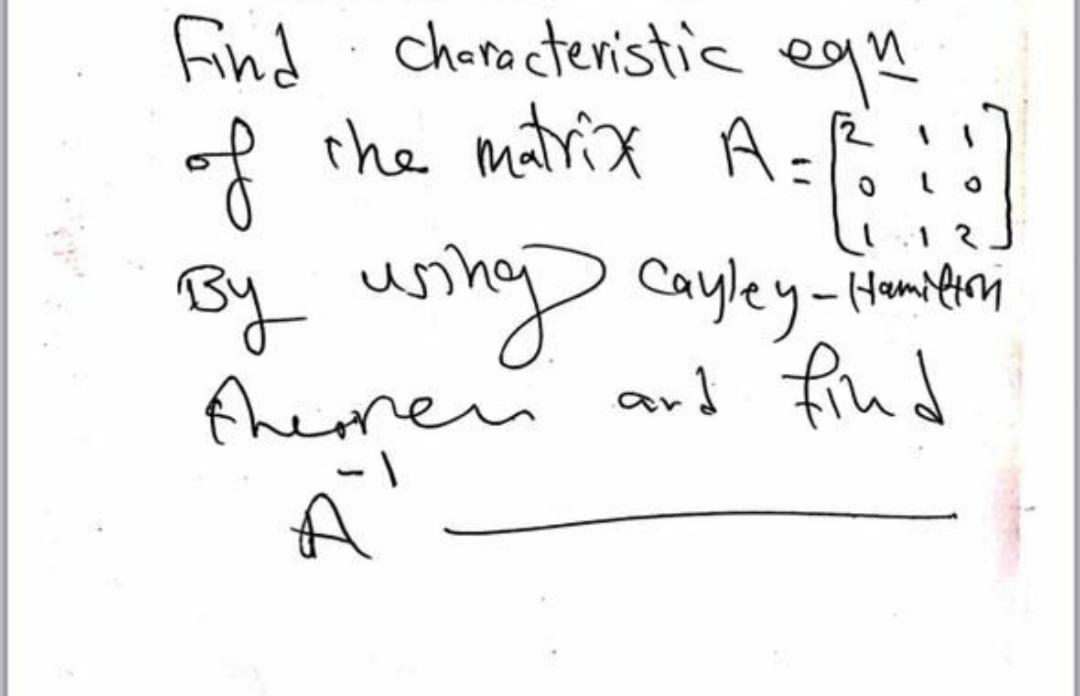 Find characteristic eqn
of the matrix A = [2 1 1
0 1 0
1 1 2]
By using Cayley-Hamilton
theorem and find
A^-1